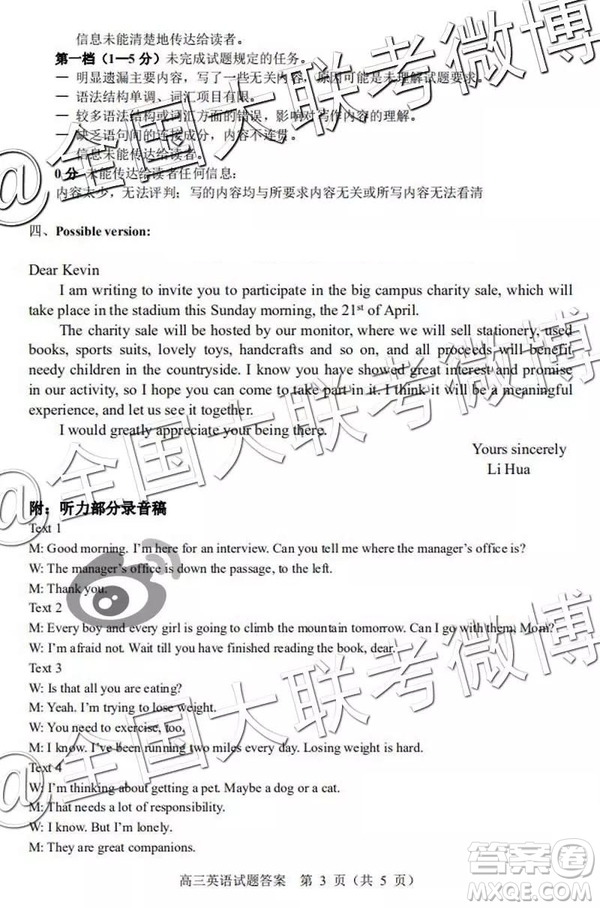 信息未能清楚地传达给读者。
第一档（1—5 分）未完成试题规定的任务。
— 明显遗漏主要内容，写了一些无关内容，原因可能是未理解试题要求。
— 语法结构单调、词汇项目有限。
— 较多语法结构或词汇方面的错误，影响对写作内容的理解。
— 缺乏语句间的连接成分，内容不连贯。
信息未能传达给读者。
0 分 未能传达给读者任何信息：
内容太少，无法评判；写的内容均与所要求内容无关或所写内容无法看清
四、Possible version:
Dear Kevin
I am writing to invite you to participate in the big campus charity sale, which will
take place in the stadium this Sunday morning, the 21st of April.
The charity sale will be hosted by our monitor, where we will sell stationery, used
books, sports suits, lovely toys, handcrafts and so on, and all proceeds will benefit
needy children in the countryside. I know you have showed great interest and promise
in our activity, so I hope you can come to take part in it. I think it will be a meaningful
experience, and let us see it together.
I would greatly appreciate your being there.
Yours sincerely
Li Hua
附：听力部分录音稿
Text 1
M: Good morning. I'm here for an interview. Can you tell me where the manager's office is?
W: The manager's office is down the passage, to the left.
M: Thank you.
Text 2
M: Every boy and every girl is going to climb the mountain tomorrow. Can I go with them, Mom?
W: I'm afraid not. Wait till you have finished reading the book, dear.
Text 3
W: Is that all you are eating?
M: Yeah. I'm trying to lose weight.
W: You need to exercise, too.
M: I know. I've been running two miles every day. Losing weight is hard.
Text 4
W: I'm thinking about getting a pet. Maybe a dog or a cat.
M: That needs a lot of responsibility.
W: I know. But I'm lonely.
M: They are great companions.
高三英语试题答案 第 3 页（共 5 页）
@全国大联考微博
@全国大联考微博
@全国大联考微博
答案圈
MXQE.COM